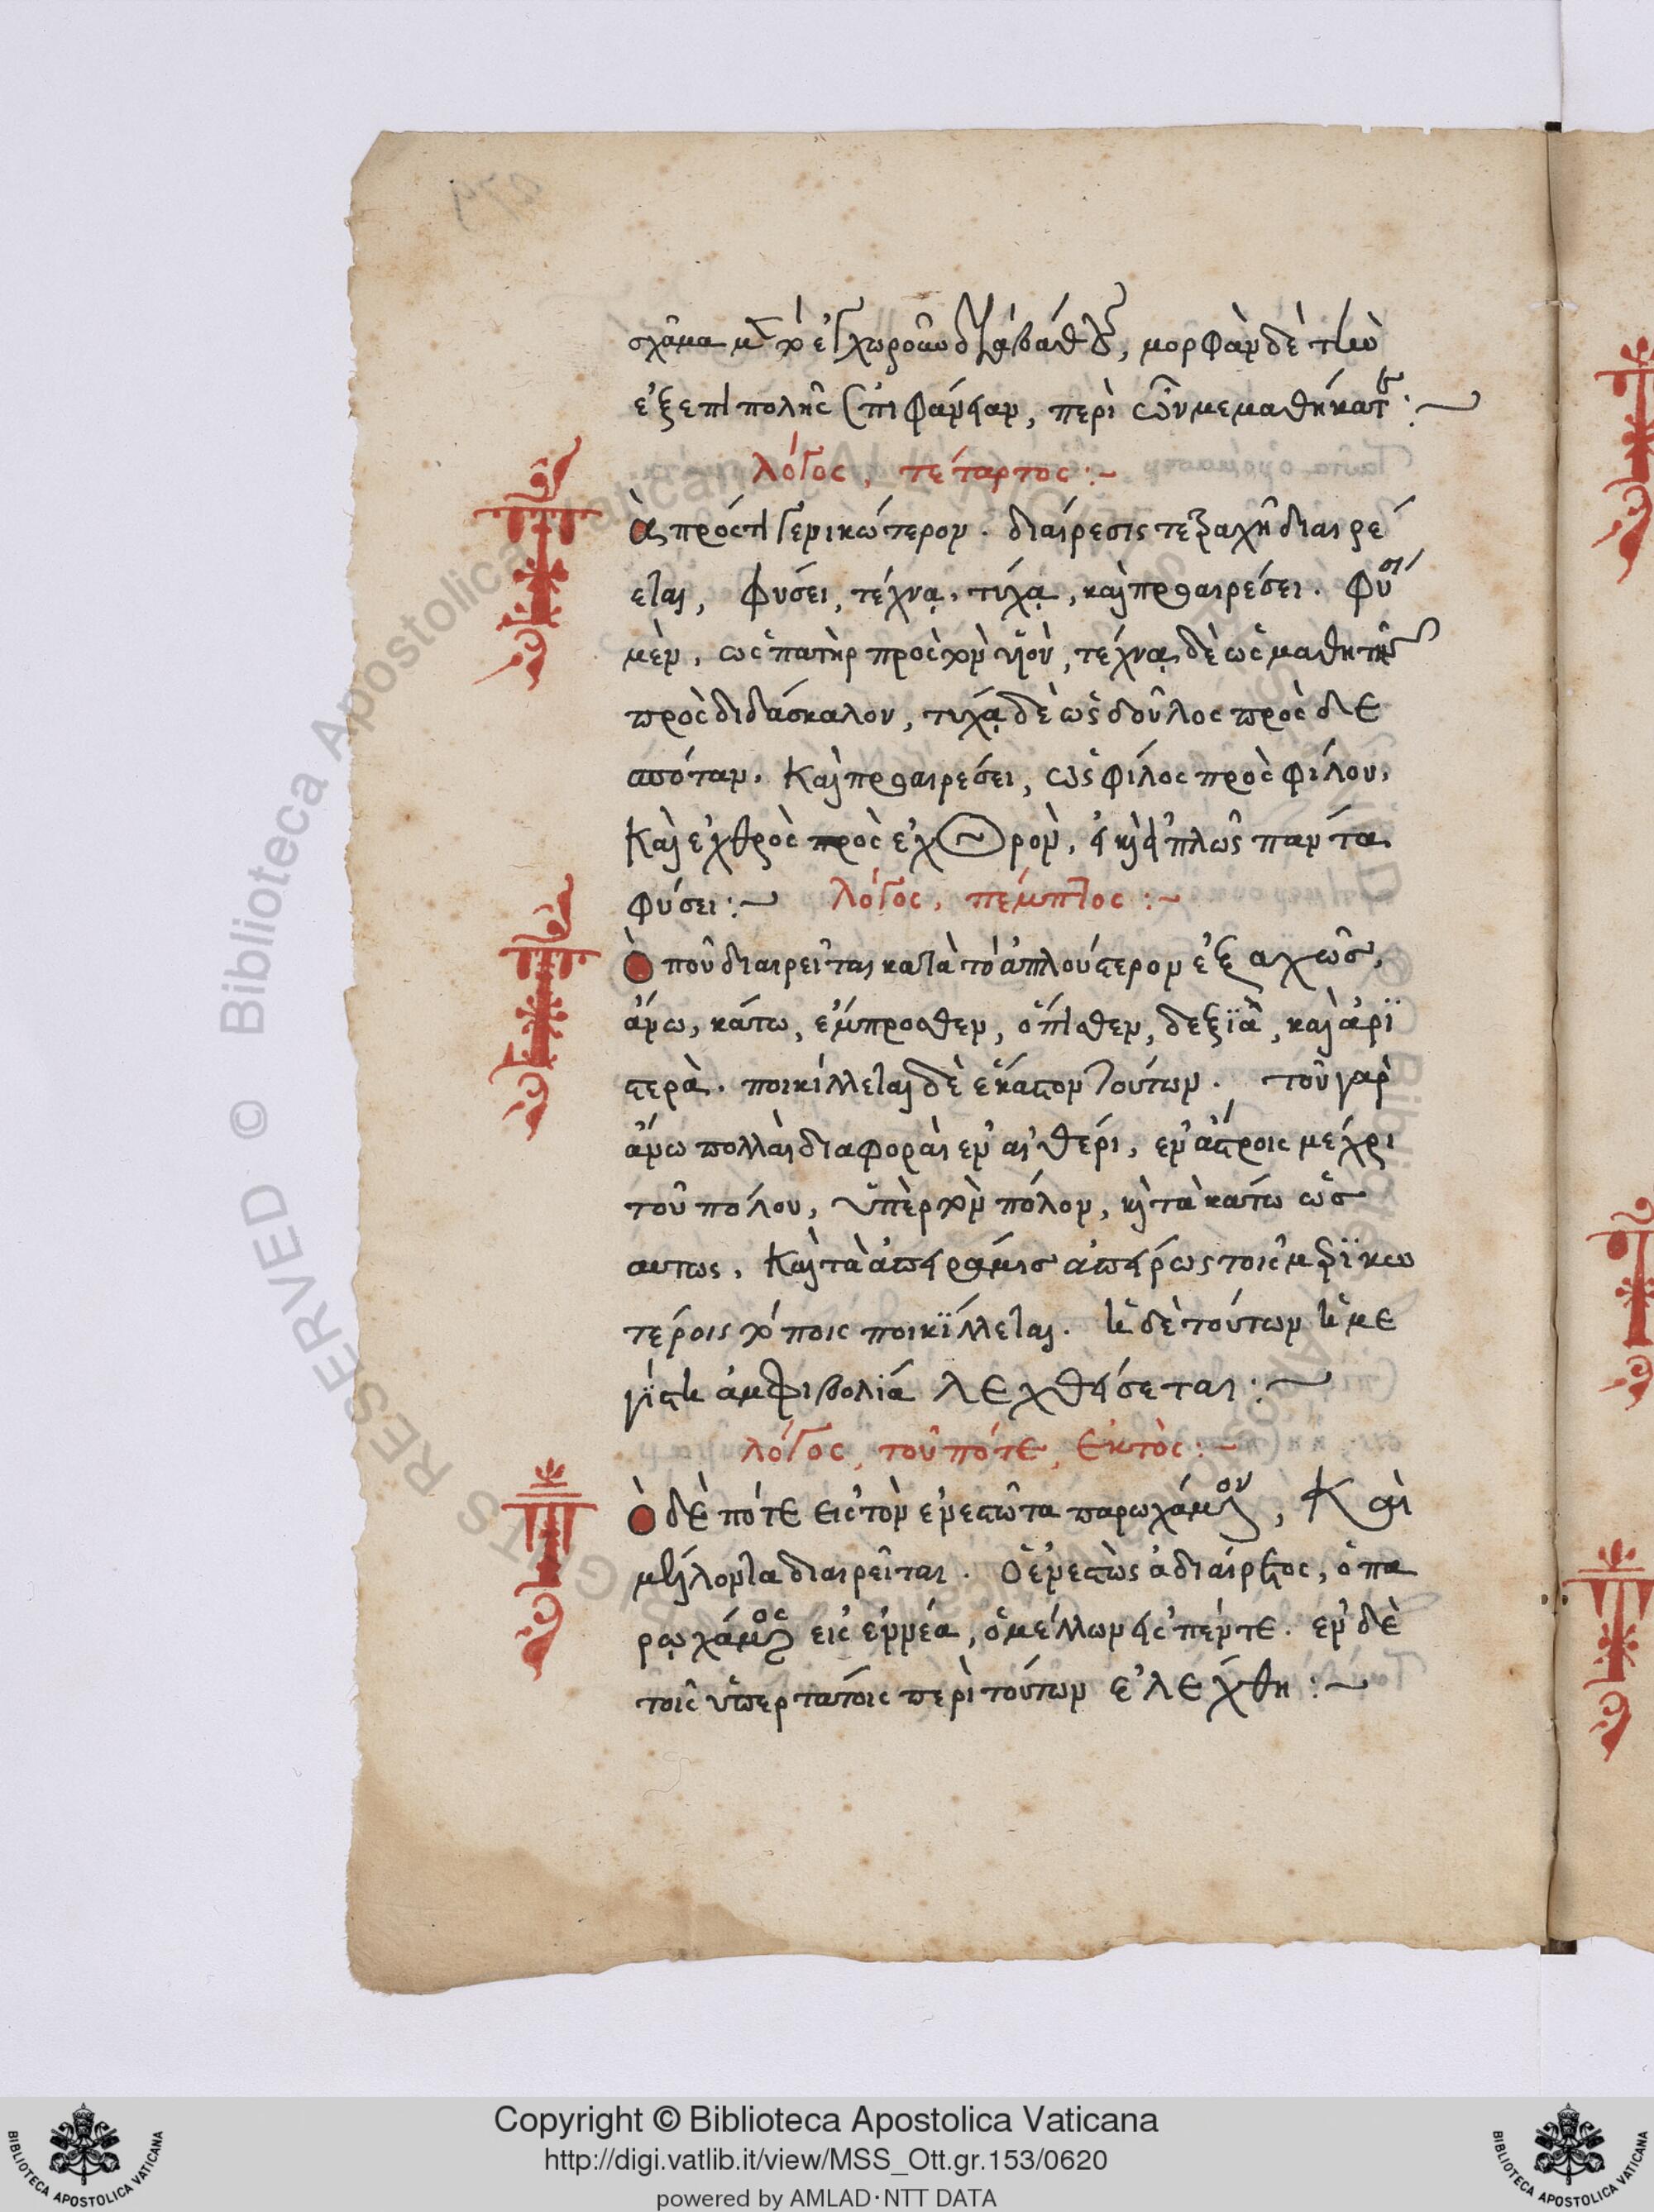 σχῆμα μὲν τὸ ἐγχωροῦν διὰ βάθους, μορφὴν δὲ τὴν
ἐξεπιπολῆς ἐπιφάνειαν, περὶ ὧν μεμαθήκατε :~
λόγος, τέταρτος :~
Ἡ πρός τι γενικώτερον. διαίρεσις τετραχῆ διαιρέ
εται, φύσει, τέχνη, τύχη, καὶ προαιρέσει. φύσει
μὲν, ὡς πατὴρ πρὸς τὸν υἱόν, τέχνη δὲ ὡς μαθητὴς
πρὸς διδάσκαλον, τύχη δὲ ὡς δοῦλος πρὸς δε
σπότην. καὶ προαιρέσει, ὡς φίλος πρὸς φίλον,
καὶ ἐχθρὸς πρὸς ἐχθρὸν, εἰ καὶ ἁπλῶς πάντα
φύσει :~ λόγος, πέμπτος :~
Ὁ ποῦ διαιρεῖται κατὰ τὸ ἁπλούστερον ἑξαχῶς,
ἄνω, κάτω, ἔμπροσθεν, ὄπισθεν, δεξϊᾶ, καὶ ἀρϊ
στερὰ. ποικίλλεται δὲ ἕκαστον τούτων. τοῦ γὰρ
ἄνω πολλαὶ διαφοραὶ ἐν αἰθέρι, ἐν ἄστροις μέχρι
τοῦ πόλου, ὑπὲρ τὸν πόλον, καὶ τὰ κάτω ὡς
αυτως. καὶ τὰ ἀπειράμις ἀπείρως τοῖς μερϊκω
τέροις τόποις ποικϊλλεται. ἡ δὲ τούτων ἡ με
γίστη ἀμφιβολία λεχθήσεται :~
λόγος, τοῦ πότε, ἑκτὸς :~
Ὁ δὲ πότε εἰς τὸν ἐνεστῶτα παρωχημένον, καὶ
μέλλοντα διαιρεῖται. ὁ ἐνεστὼς ἀδιαίρετος, ὁ πα
ρῳχημένος εἰς ἐννέα, ὁ μέλλων εἰς πέντε. ἐν δὲ
τοῖς ὑπερτάτοις περὶ τούτων ἐλέχθη :~
© Biblioteca Apostolica Vaticana
Copyright © Biblioteca Apostolica Vaticana
http://digi.vatlib.it/view/MSS_Ott.gr.153/0620
powered by AMLAD·NTT DATA
BIBLIOTECA APOSTOLICA VATICANA
BIBLIOTECA APOSTOLICA VATICANA